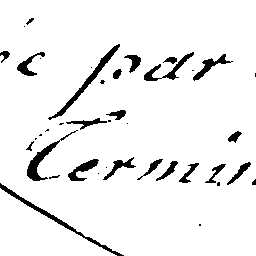 par
Termin